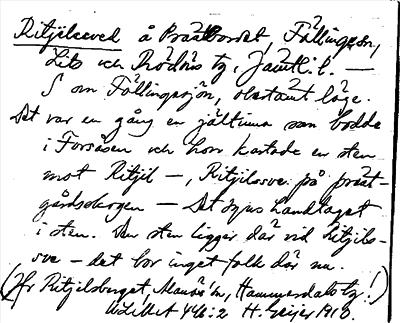 Ritjilsved å Prästbordet, Föllingesn,
Lits och Rödöns tg, Jämtl. l. —
S om Föllingesjön, obestämt läge.
Det var en gång en jältinna som bodde
i Forsåsen och hon kastade en sten
mot Ritjil —, Ritjilssve på präst-
gårdsskogen — Det synes handtaget
i sten. Den sten ligger där vid Ritjils-
sve — det bor inget folk där nu.
(Jfr Ritjilsberget, sn, Hammerdals tg!)
ULMA 446:2 H. Geijer 1910.